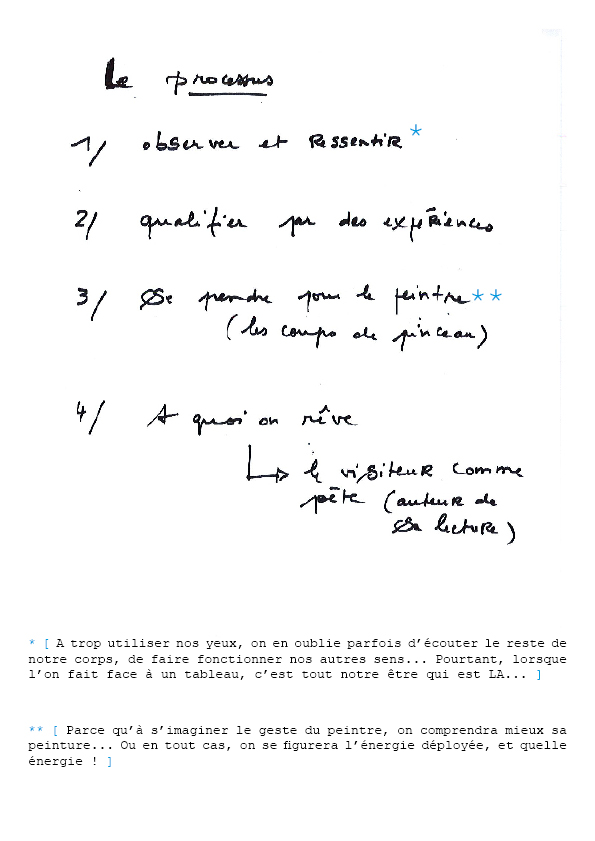 Le processus
1/ observer et Ressentir *
2/ qualifier par des expériences
3/ Se prendre pour le peintre **
(les coups de pinceau)
4/ A quoi on rêve
↳ le visiteur comme
poète (auteur de
sa lecture)
* [ A trop utiliser nos yeux, on en oublie parfois d’écouter le reste de
notre corps, de faire fonctionner nos autres sens... Pourtant, lorsque
l’on fait face à un tableau, c’est tout notre être qui est LA... ]
** [ Parce qu’à s’imaginer le geste du peintre, on comprendra mieux sa
peinture... Ou en tout cas, on se figurera l’énergie déployée, et quelle
énergie ! ]